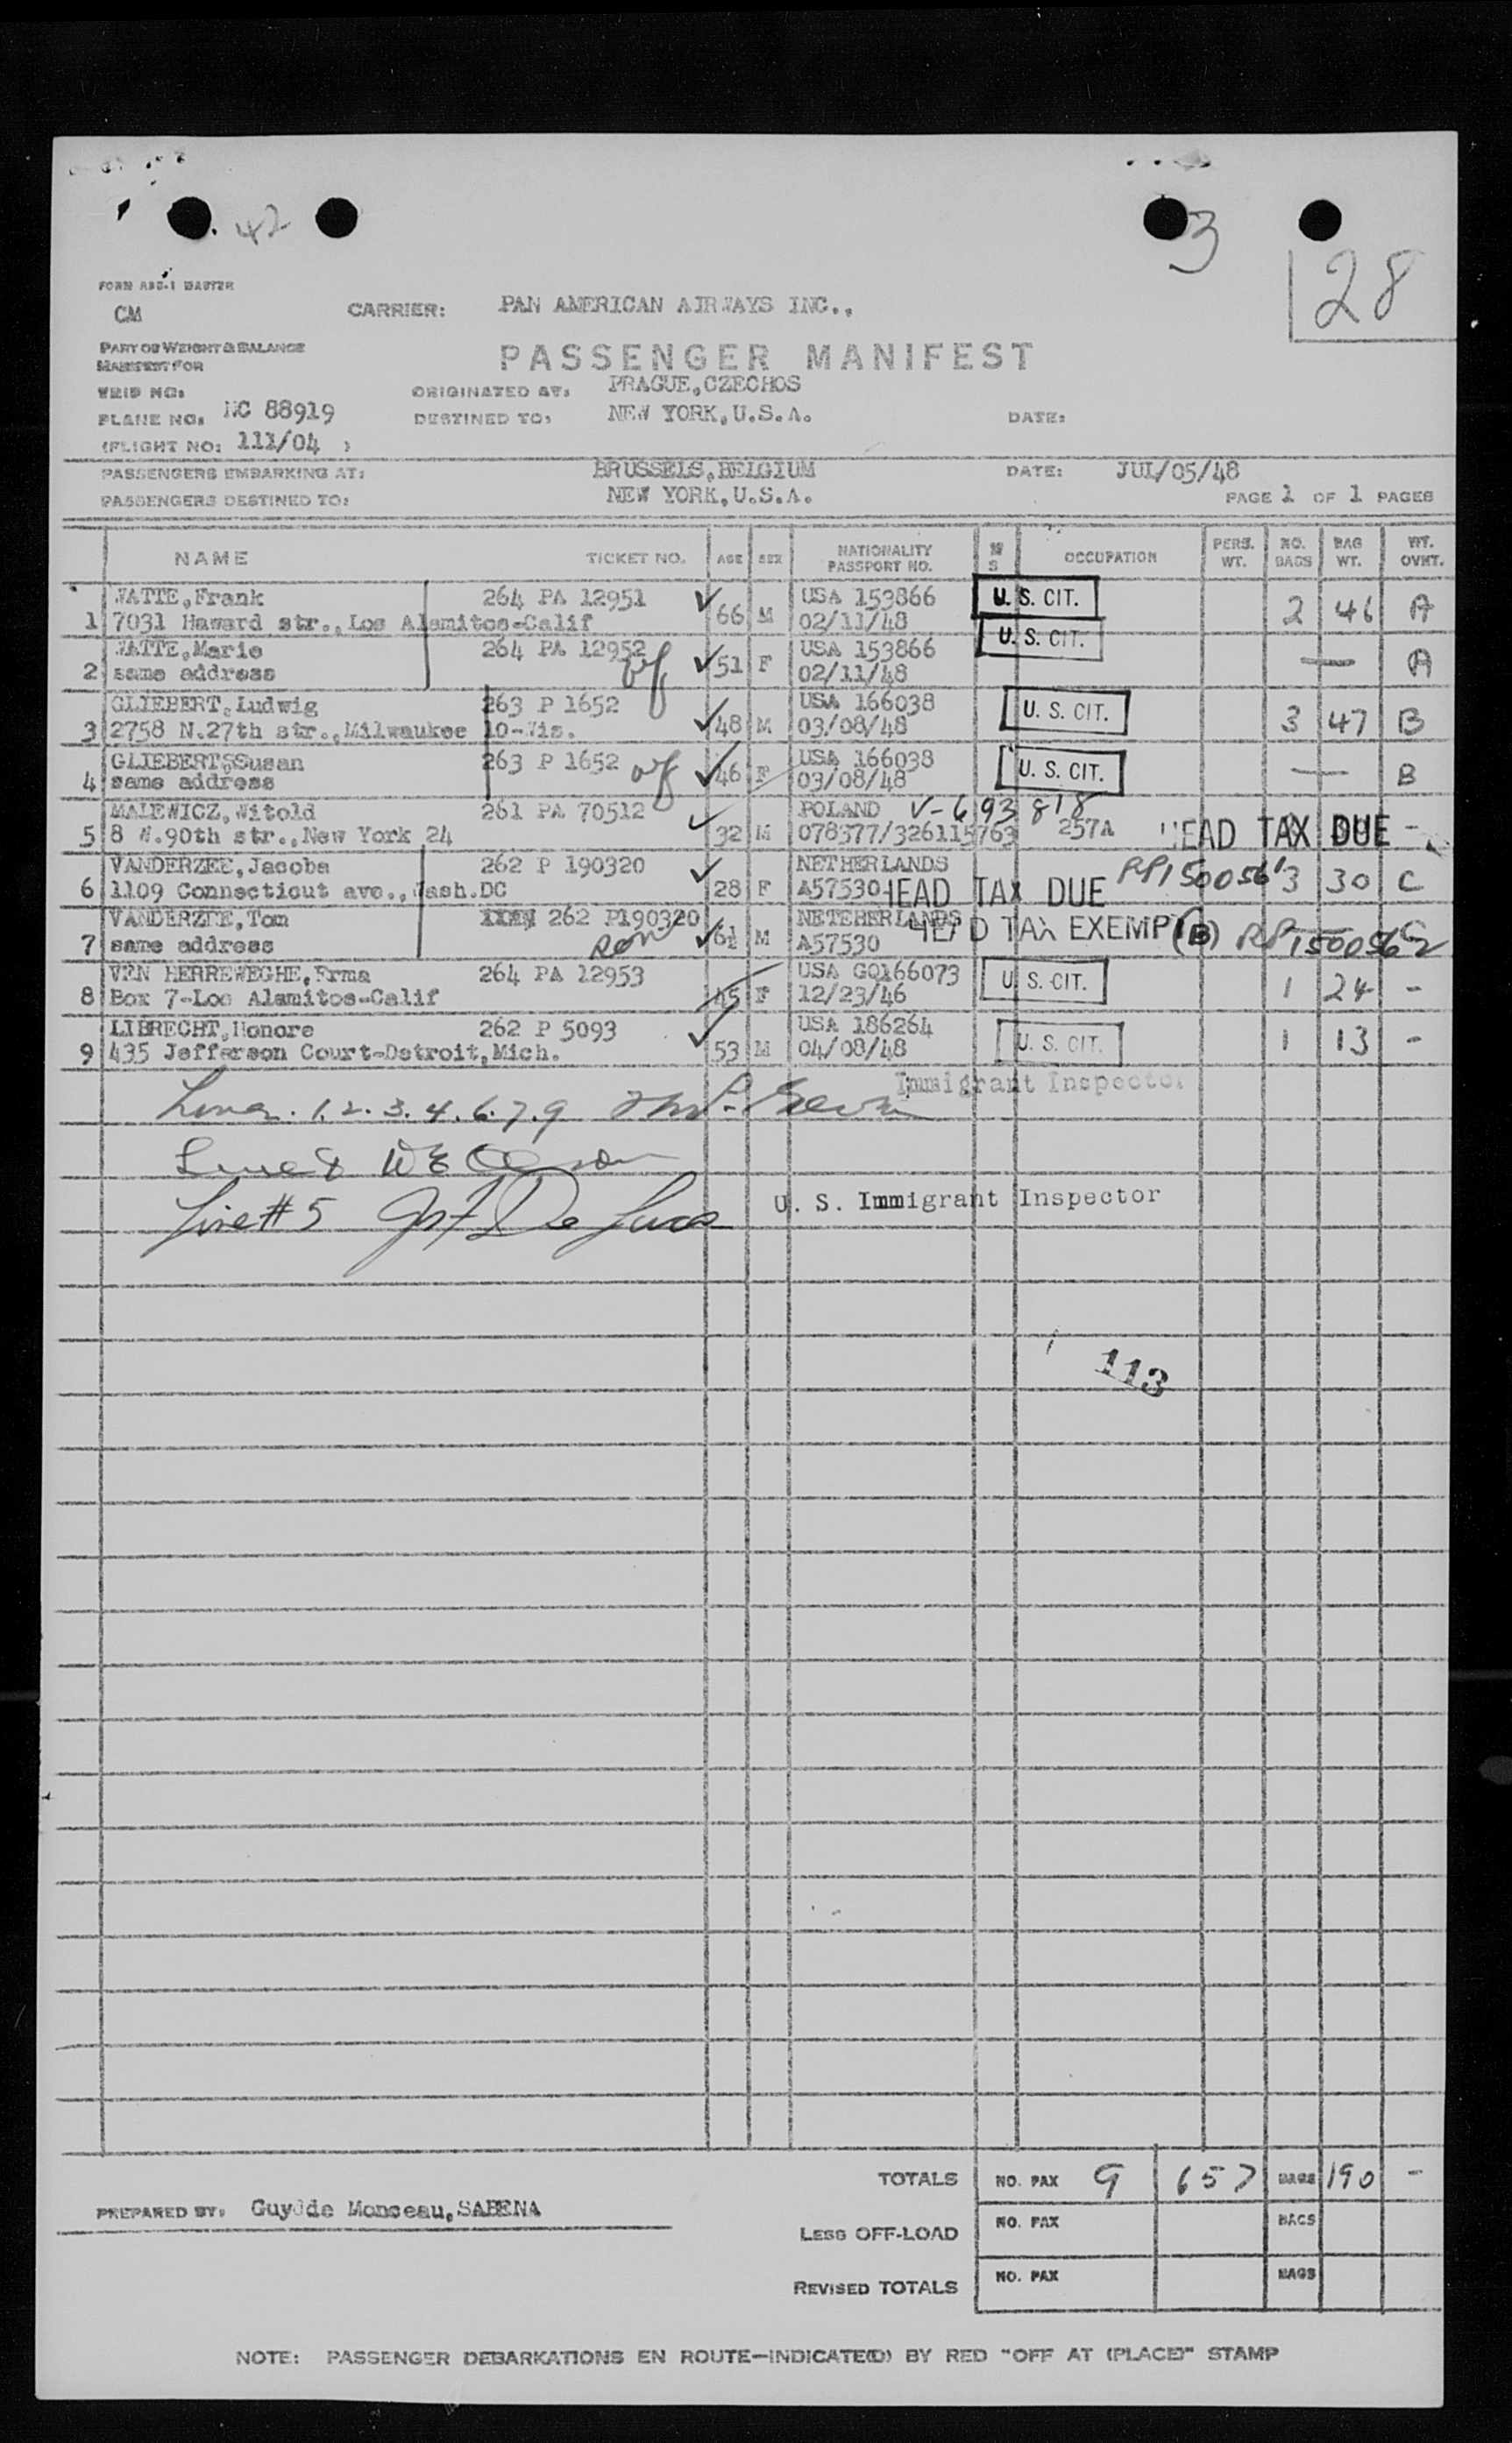 42
3
28
FORM ABC-1 MASTER
CM
CARRIER: PAN AMERICAN AIRWAYS INC.,
PART OF WEIGHT & BALANCE
MANIFEST FOR
PASSENGER MANIFEST
TRIP NO:
ORIGINATED AT: PRAGUE,CZECHOS
PLANE NO: NC 88919
DESTINED TO: NEW YORK,U.S.A.
DATE:
(FLIGHT NO: 111/04 )
PASSENGERS EMBARKING AT: BRUSSELS,BELGIUM DATE: JUL/05/48
PASSENGERS DESTINED TO: NEW YORK,U.S.A. PAGE 1 OF 1 PAGES
NAME TICKET NO. AGE SEX NATIONALITY PASSPORT NO. M S OCCUPATION PERS. WT. NO. BAGS BAG WT. WT. OVHT.
WATTE,Frank 264 PA 12951 USA 153866 U. S. CIT.
1 7031 Haward str.,Los Alamitos-Calif 66 M 02/11/48 2 46 A
WATTE,Marie 264 PA 12952 USA 153866 U. S. CIT.
2 same address wf 51 F 02/11/48 — A
GLIEBERT,Ludwig 263 P 1652 USA 166038 U. S. CIT.
3 2758 N.27th str.,Milwaukee 10-Wis. 48 M 03/08/48 3 47 B
GLIEBERT,Susan 263 P 1652 wf USA 166038 U. S. CIT.
4 same address 46 F 03/08/48 — B
MALEWICZ,Witold 261 PA 70512 POLAND V-693818
5 8 W.90th str.,New York 24 32 M 078377/326115763 257A HEAD TAX DUE -
VANDERZEE,Jacoba 262 P 190320 NETHERLANDS RP1500561
6 1109 Connecticut ave.,Wash.DC 28 F A57530 HEAD TAX DUE 3 30 C
VANDERZEE,Tom 262 P190320 NETEHERLANDS HEAD TAX EXEMPT (B) RP150056 C
7 same address son 6½ M A57530
VEN HERREWEGHE,Erma 264 PA 12953 USA GQ166073 U. S. CIT.
8 Box 7-Los Alamitos-Calif 45 F 12/23/46 1 24 -
LIBRECHT,Honore 262 P 5093 USA 186264 U. S. CIT.
9 435 Jefferson Court-Detroit,Mich. 53 M 04/08/48 1 13 -
Immigrant Inspector
Lines. 1. 2. 3. 4. 6. 7. 9
Line 8
Line # 5 U. S. Immigrant Inspector
113
TOTALS NO. PAX 9 657 BAGS 190 -
PREPARED BY: Guy de Monceau,SABENA
LESS OFF-LOAD NO. PAX BAGS
REVISED TOTALS NO. PAX BAGS
NOTE: PASSENGER DEBARKATIONS EN ROUTE—INDICATE(D) BY RED "OFF AT (PLACE)" STAMP